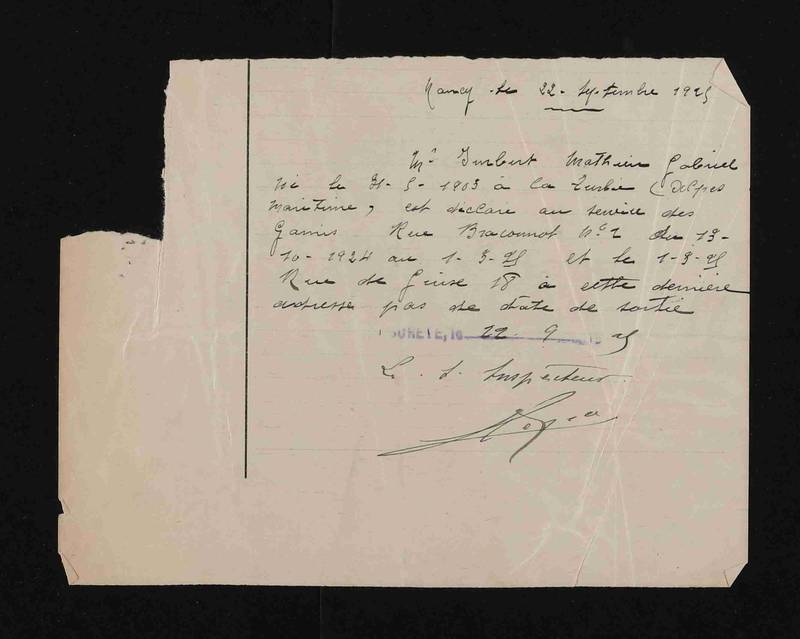 Nancy le 22 Septembre 1925
Mr Imbert Mathieu Gabriel
né le 31-5-1903 à la Turbie (Alpes
Maritime, est déclaré au service des
Garnis Rue Braconnot No 2 du 13-
10-1924 au 1-3-25 et le 1-3-25
Rue de Guise 18 à cette dernière
adresse pas de date de sortie
SURETE, le 22 9 25
L. s. Inspecteur.